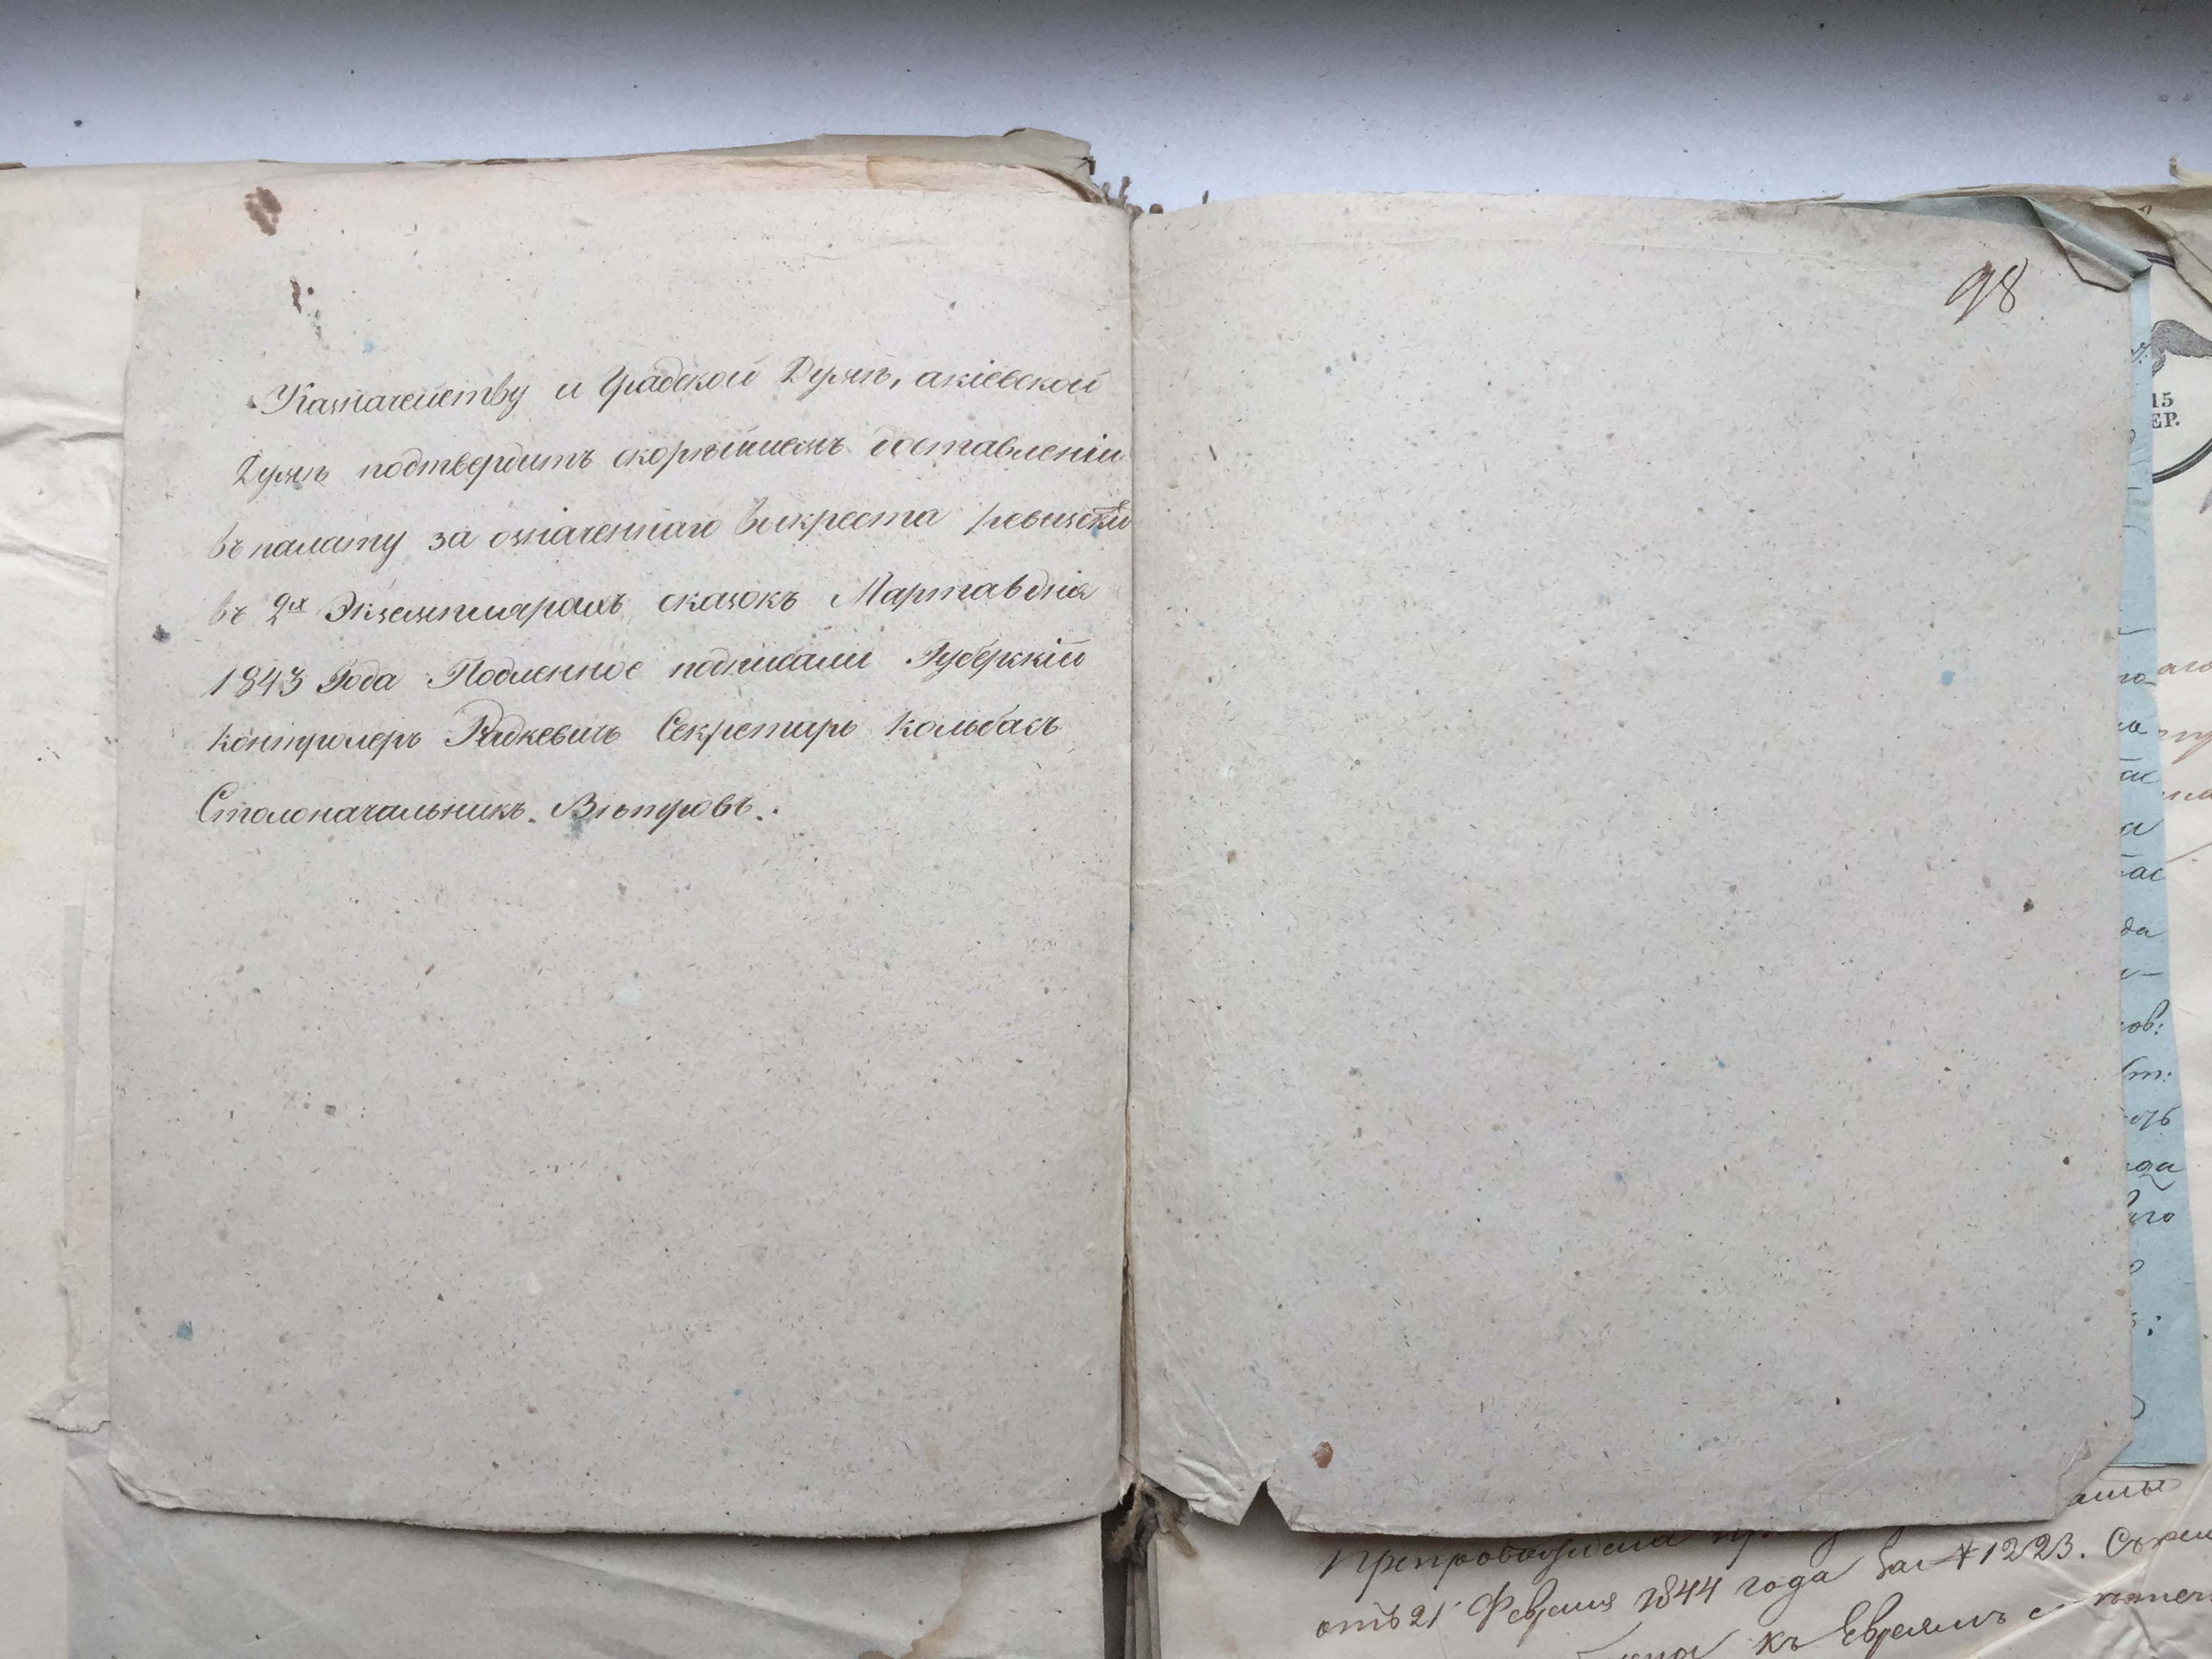 Казначейству и Градской Думѣ, акіевской
Думѣ подтвердить скорѣйшемъ доставленіи
въ палату за означеннаго выкреста ревизскихъ
въ 2х Экземплярахъ сказокъ Марта дня
1843 Года Подленное подписали Губерскій
контролеръ Радкевичъ Секретарь Кольбасъ
Столоначальникъ. Вѣтровъ.
98
15
ЕР.
отъ 21 Февраля 1844 года за № 1223.
къ Евреямъ с